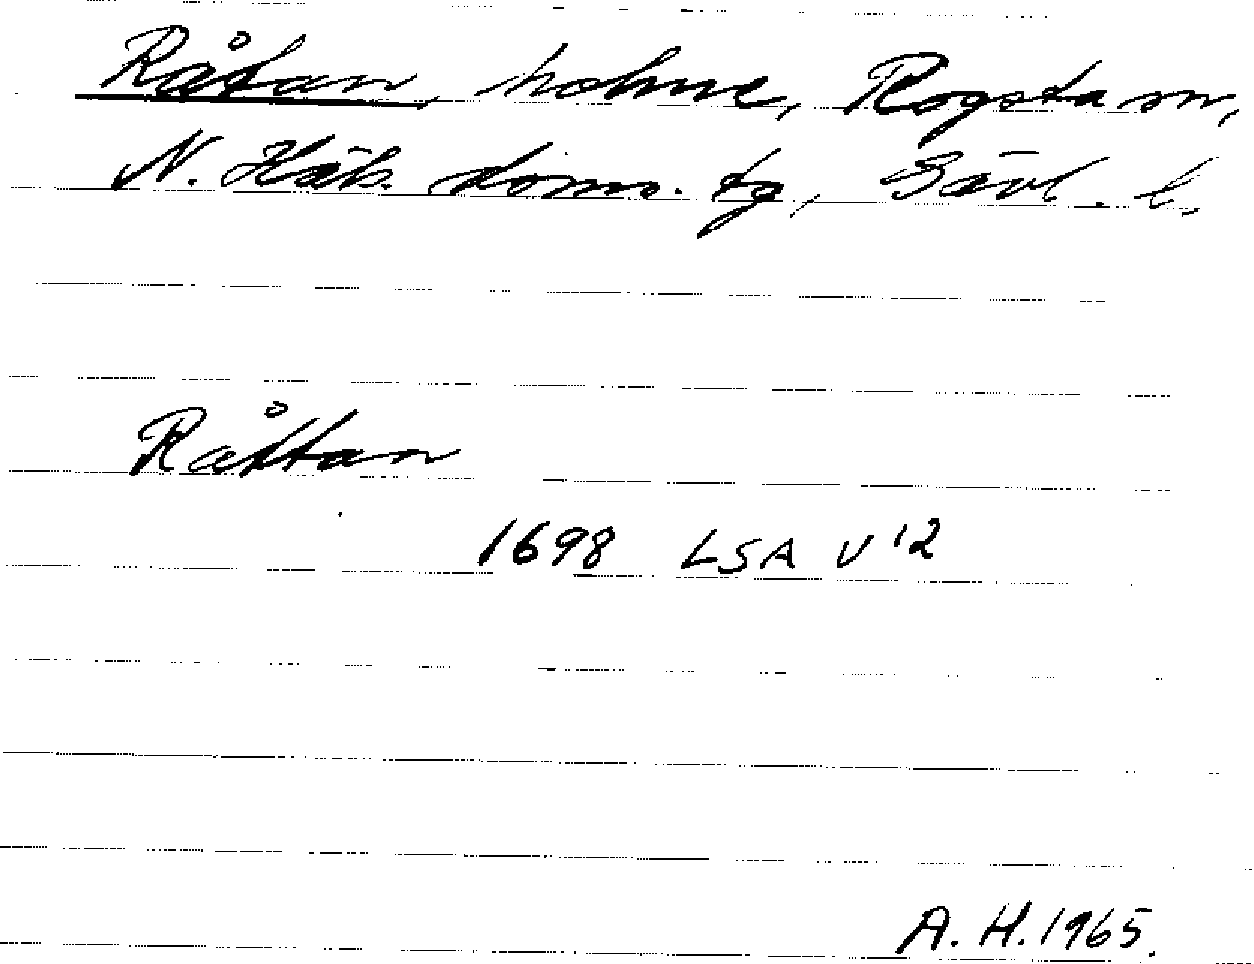 Råtan, holme, Rogsta sn,
N. Häls. doms. tg, Gävl. l.
Råttan
1698 LSA V 12
A. H. 1965.